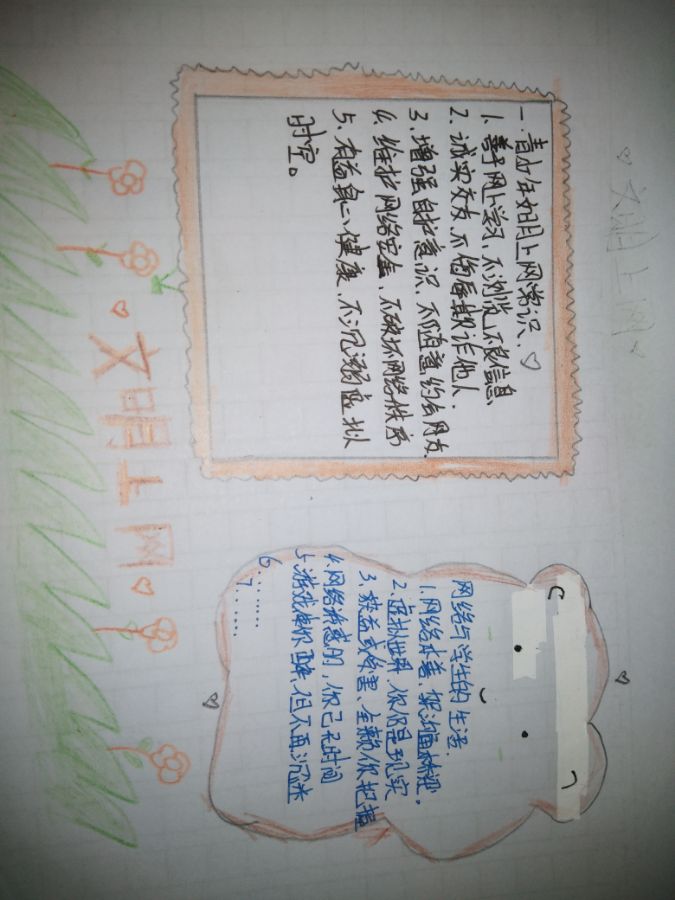 文明上网
一.青少年文明上网常识.
1.善于网上学习、不浏览不良信息
2.诚实交友、不侮辱欺诈他人.
3.增强自护意识、不随意约会网友.
4.维护网络安全、不破坏网络秩序
5、有益身心健康、不沉溺虚拟
时空。
网络与学生的生活.
1.网络本善、
2.虚拟世界、你仍是现实
3、获益或伤害、全赖你把握
4.网络
5、游戏
6......
7......
文明上网